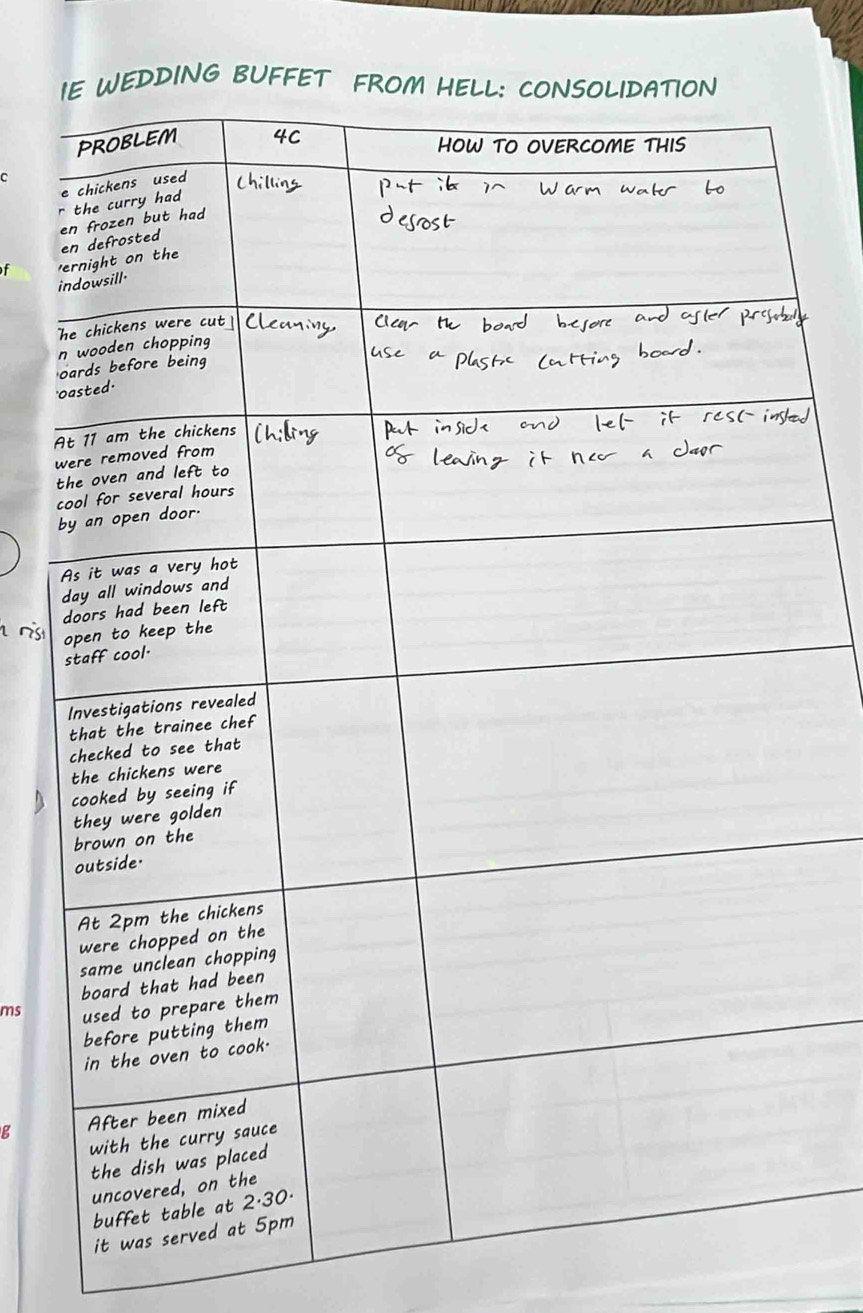 IE WEDDING BUFFET FROM HELL: CONSOLIDATION
PROBLEM
4C
HOW TO OVERCOME THIS
e chickens used
r the curry had
en frozen but had
en defrosted
ernight on the
indowsill.
Chilling
put it in warm water to
defrost
he chickens were cut
n wooden chopping
oards before being
oasted.
Cleaning
Clean the board before and after
use a plastic cutting board.
At 11 am the chickens
were removed from
the oven and left to
cool for several hours
by an open door.
Chilling
put inside and let it rest insted
of leaving it near a door
As it was a very hot
day all windows and
doors had been left
open to keep the
staff cool.
Investigations revealed
that the trainee chef
checked to see that
the chickens were
cooked by seeing if
they were golden
brown on the
outside.
At 2pm the chickens
were chopped on the
same unclean chopping
board that had been
used to prepare them
before putting them
in the oven to cook.
After been mixed
with the curry sauce
the dish was placed
uncovered, on the
buffet table at 2.30.
it was served at 5pm
c
of
ms
g